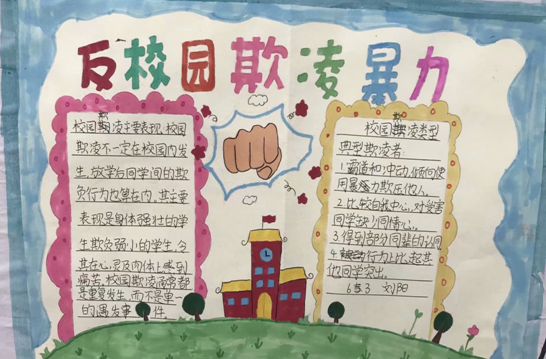 反校园欺凌暴力
校园欺凌主要表现,校园
欺凌不一定在校园内发
生,放学后同学间的欺
负行为也算在内,其主要
表现是身体强壮的学
生欺负弱小的学生,令
其在心灵及肉体上感到
痛苦,校园欺凌通常都
是重复发生,而不是单一
的偶发事件
校园欺凌类型
典型欺凌者
1.霸道和冲动,倾向使
用暴力欺压他人。
2.比较自我中心,对受害
同学缺少同情心。
3.得到部分同辈的认同
4.行为上比起其
他同学突出。
刘阳